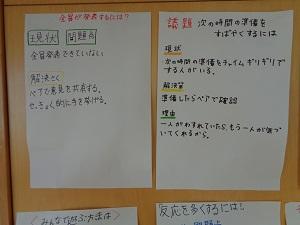 全員が発表するには?
現状 問題点
全員発表できていない
解決さく
ペアで意見を共有する。
せっきょく的に手を挙げる。
議題 次の時間の準備を
すばやくするには
現状
次の時間の準備をチャイムギリギリで
する人がいる。
解決策
準備したらペアで確認
理由
一人がわすれていたら、もう一人が気づ
いてくれるから。
くみんなで遊ぶ方法は
反応を多くするには!